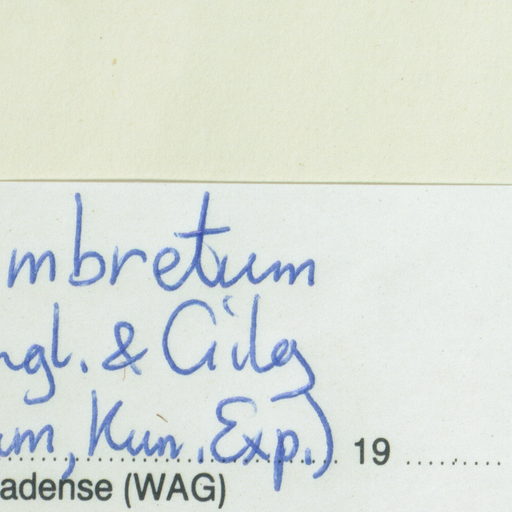 mbretum
ngl. & Gilg
um, Kun. Exp.) 19
adense (WAG)